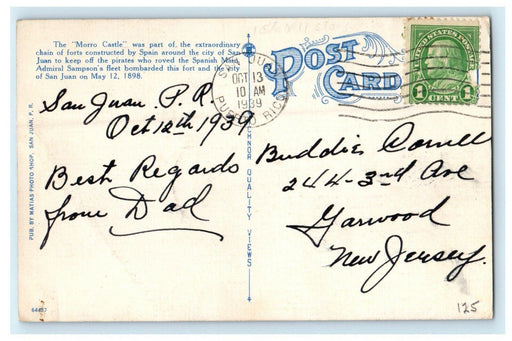 The "Morro Castle" was part of, the extraordinary
chain of forts constructed by Spain around the city of San
Juan to keep off the pirates who roved the Spanish Main.
Admiral Sampson's fleet bombarded this fort and the city
of San Juan on May 12, 1898.
POST
CARD
SAN JUAN
OCT 13
10 AM
1939
PUERTO RICO
UNITED STATES POSTAGE
1 CENT 1
San Juan. P. R.
Oct 12th 1939
Best Regards
from Dad
Buddie
244-3rd Ave
Garwood
New Jersey.
PUB. BY MATIAS PHOTO SHOP, SAN JUAN, P. R.
QUALITY VIEWS
125